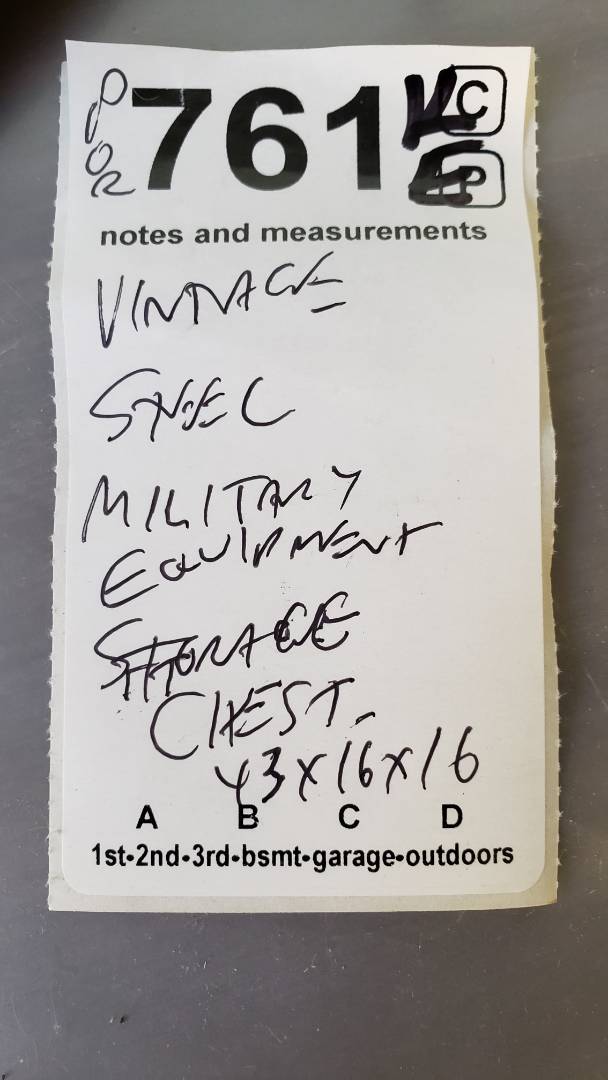 POR
761
C
P
notes and measurements
VINTAGE
STEEL
MILITARY
EQUIPMENT
STORAGE
CHEST.
43x16x16
A B C D
1st•2nd•3rd•bsmt•garage•outdoors